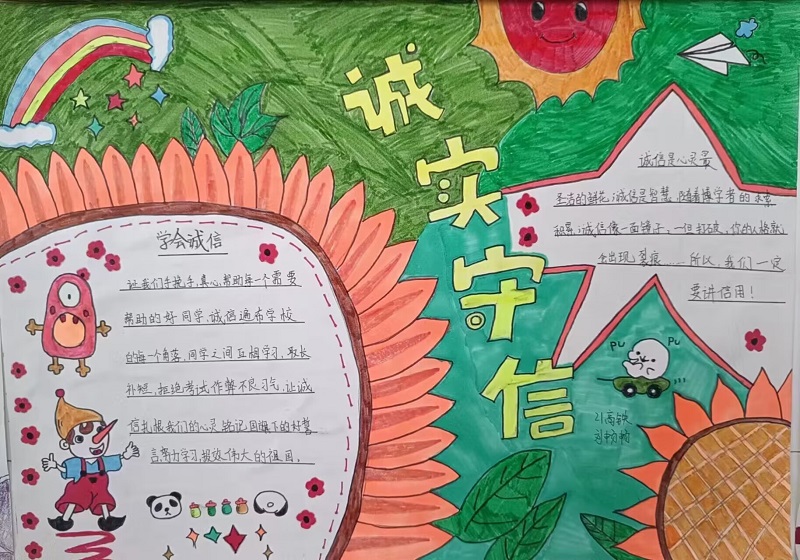 诚实守信
学会诚信
让我们手挽手,真心帮助每一个需要
帮助的好同学,诚信遍布学校
的每一个角落,同学之间互相学习,取长
补短,拒绝考试作弊不良习气,让诚
信扎根我们的心灵,铭记国旗下的好誓
言努力学习,报效伟大的祖国。
诚信是心灵最
圣洁的鲜花;诚信是智慧,随着博学者的求索
积累;诚信像一面镜子,一但打破,你的人格就
会出现裂痕……所以,我们一定
要讲信用!
PU PU